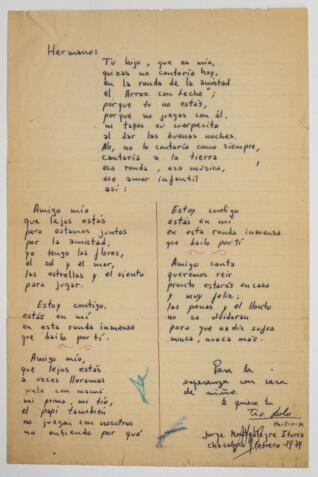 Hermano:
Tu hijo, que es mío,
quizas no cantaría hoy,
en la ronda de la amistad
el "Arroz con leche";
porque tu no estás,
porque no juegas con él,
ni tapas su cuerpecito
al dar las buenas noches.
No, no lo cantaría como siempre,
cantaría a la tierra
esa ronda, esa música,
ese amor infantil
así:
Amigo mío
que lejos estás
pero estamos juntos
por la amistad,
yo tengo las flores,
el sol y el mar,
las estrellas y el viento
para jugar.
Estoy contigo,
estás en mí
en esta ronda inmensa
que bailo por tí.
Amigo mío,
que lejos estás
a veces lloramos
junto con mamá
mi primo, mi tío,
el papi también
no juegan con nosotros
no entiendo por qué
Estoy contigo
estás en mí
en esta ronda inmensa
que bailo por tí
Amigo canta
queremos reir
pronto estarás en casa
y muy feliz;
las penas y el llanto
no se olvidaran
para que nadie sufra
nunca, nunca más.
Para la
esperanza con cara
de niño.
te quiere tu
Tío Lolo
Jorge Montealegre Iturra
Chacabuco - Febrero - 1974